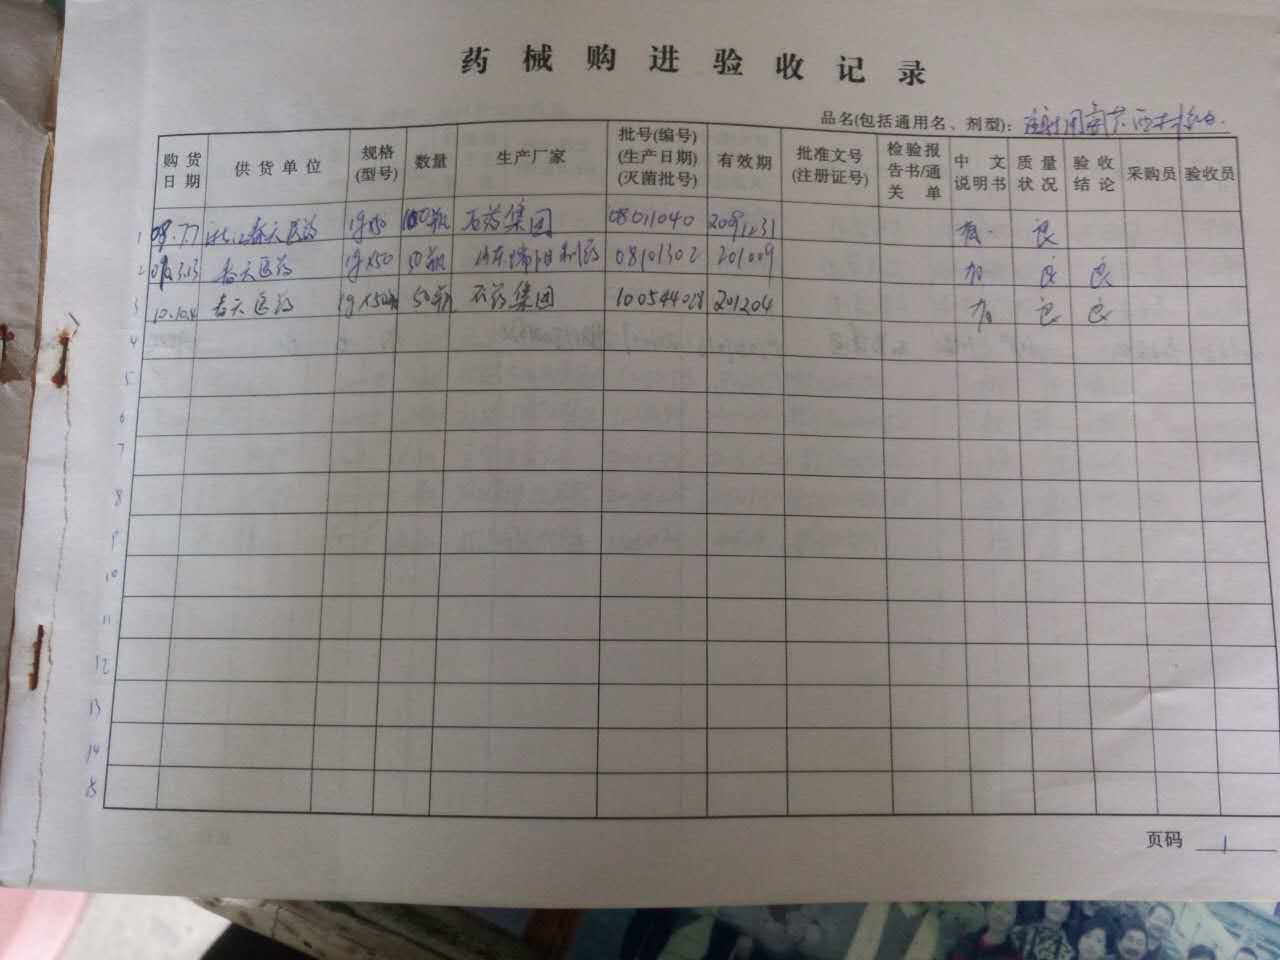 药械购进验收记录
品名(包括通用名、剂型): 注射用
购货日期 供货单位 规格(型号) 数量 生产厂家 批号(编号)(生产日期)(灭菌批号) 有效期 批准文号(注册证号) 检验报告书/通关单 中文说明书 质量状况 验收结论 采购员 验收员
1 08.7.7 浙江春天医药 1g×50 100瓶 石药集团 08011040 20091231 有 良
2 09.3.13 春天医药 1g×50 50瓶 08101302 201009 有 良 良
3 10.10.4 春天医药 1g×50瓶 50瓶 石药集团 100544028 201204 有 良 良
4
5
6
7
8
9
10
11
12
13
14
15
页码 1